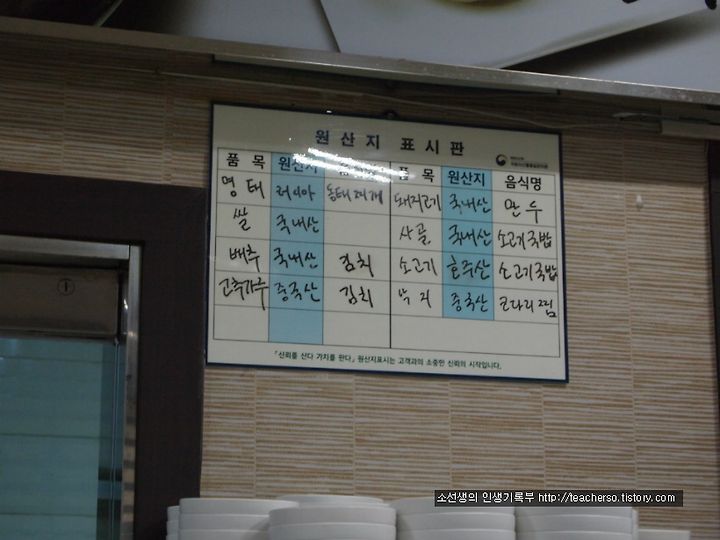 원산지 표시판
품 목 원산지 음식명 품 목 원산지 음식명
명태 러시아 동태찌개 돼지고기 국내산 만두
쌀 국내산 사골 국내산 소고기국밥
배추 국내산 김치 소고기 호주산 소고기국밥
고추가루 중국산 김치 낙지 중국산 코다리찜
「신뢰를 산다 가치를 판다」 원산지표시는 고객과의 소중한 신뢰의 시작입니다.
소선생의 인생기록부 http://teacherso.tistory.com